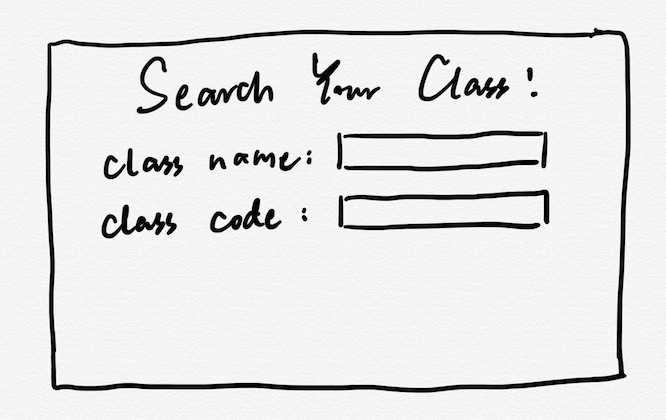 Search Your Class!
class name:
class code: